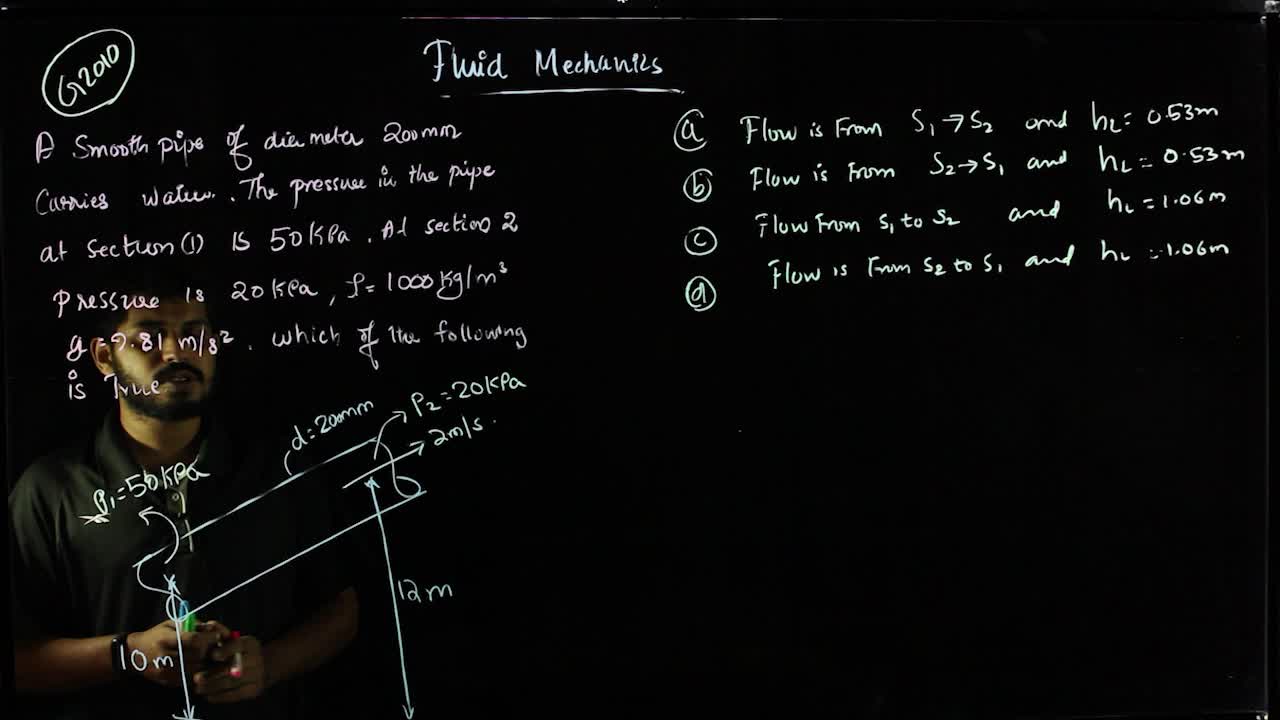 G2010
Fluid Mechanics
A Smooth pipe of diameter 200mm
Carries water. The pressure in the pipe
at section (1) is 50 KPa. At section 2
pressure is 20 KPa, ρ = 1000 Kg/m³
g = 9.81 m/s². which of the following
is True
(a) Flow is From S₁ → S₂ and hL = 0.53m
(b) Flow is From S₂ → S₁ and hL = 0.53m
(c) Flow From S₁ to S₂ and hL = 1.06m
(d) Flow is From S₂ to S₁ and hL = 1.06m
d = 200mm
P₂ = 20 KPa
2m/s.
P₁ = 50 KPa
12m
10m